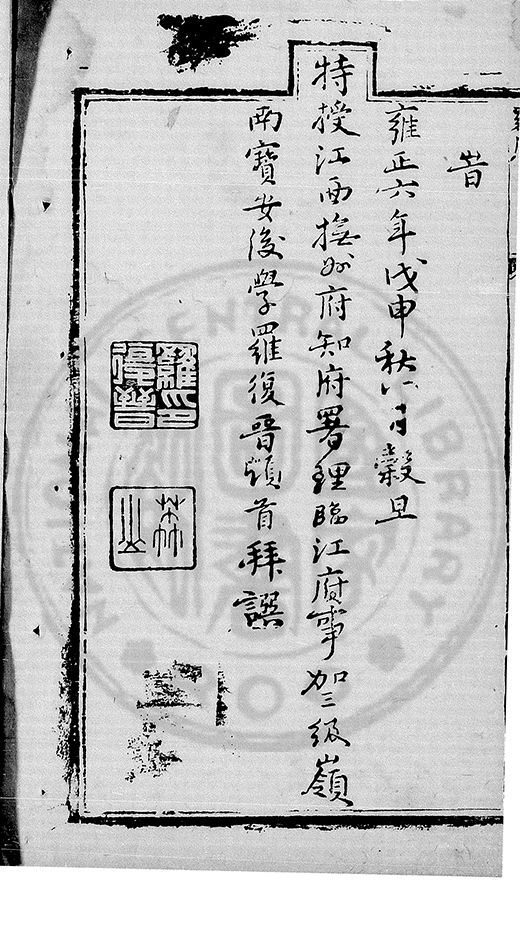 昔
雍正六年戊申秋八月穀旦
特授江西撫州府知府署理臨江府事加三級嶺
南寶安後學羅復晉頓首拜譔
羅復晉印